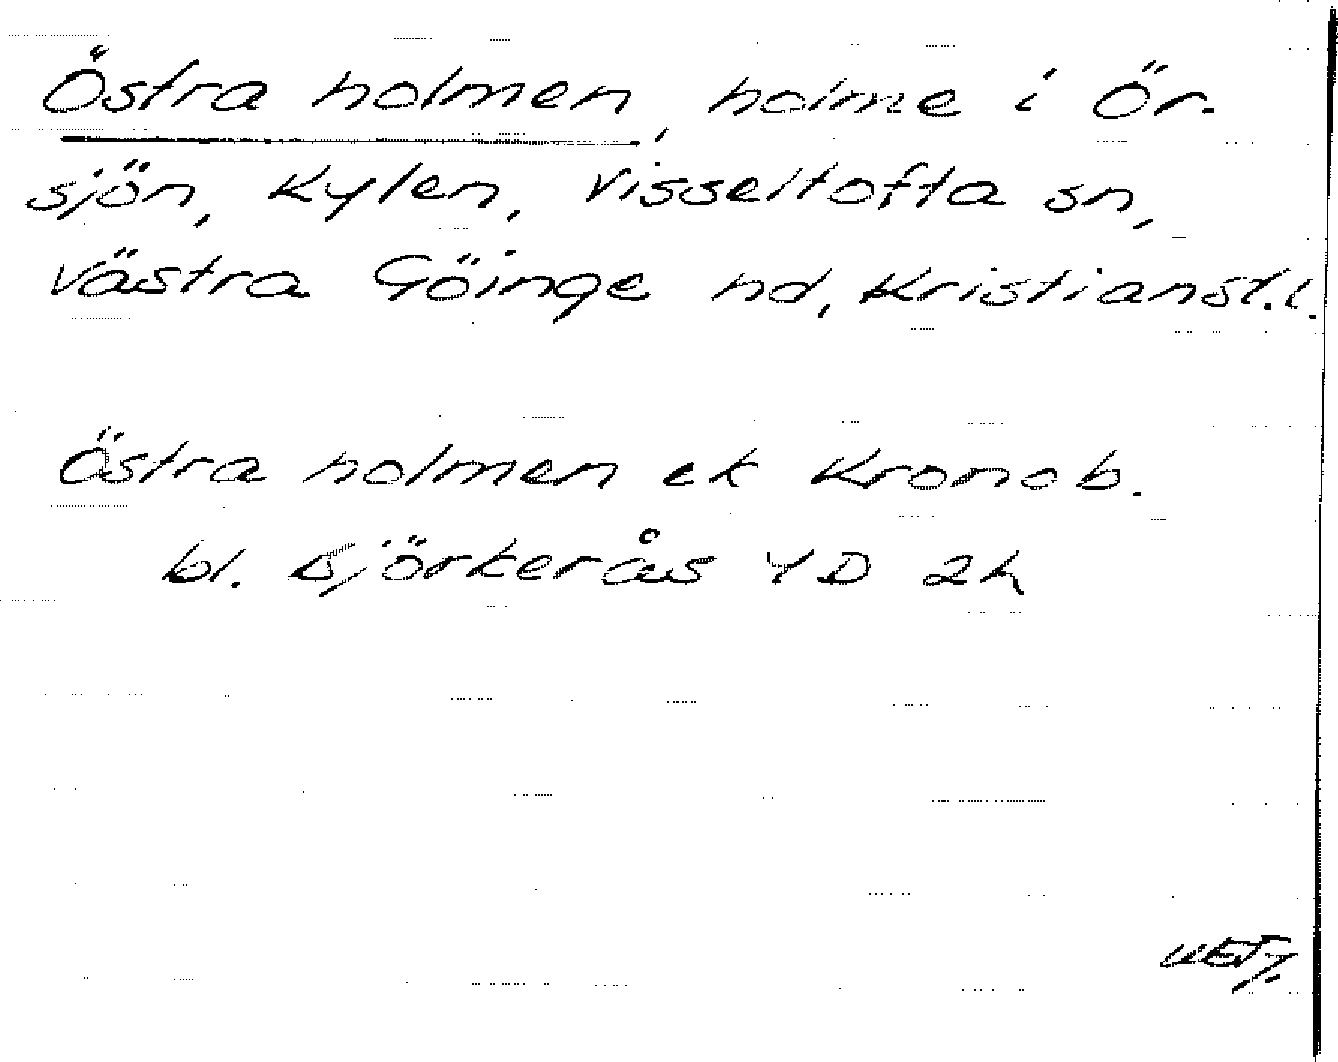 Östra holmen, holme i Ör-
sjön, Kylen, Visseltofta sn,
Västra Göinge hd, Kristianst.l.
Östra holmen ek Kronob.
bl. Björkerås 4D 2h